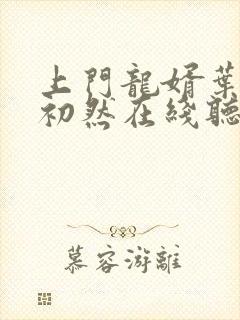 上門龍婿葉
初然在綫聽
慕容游離